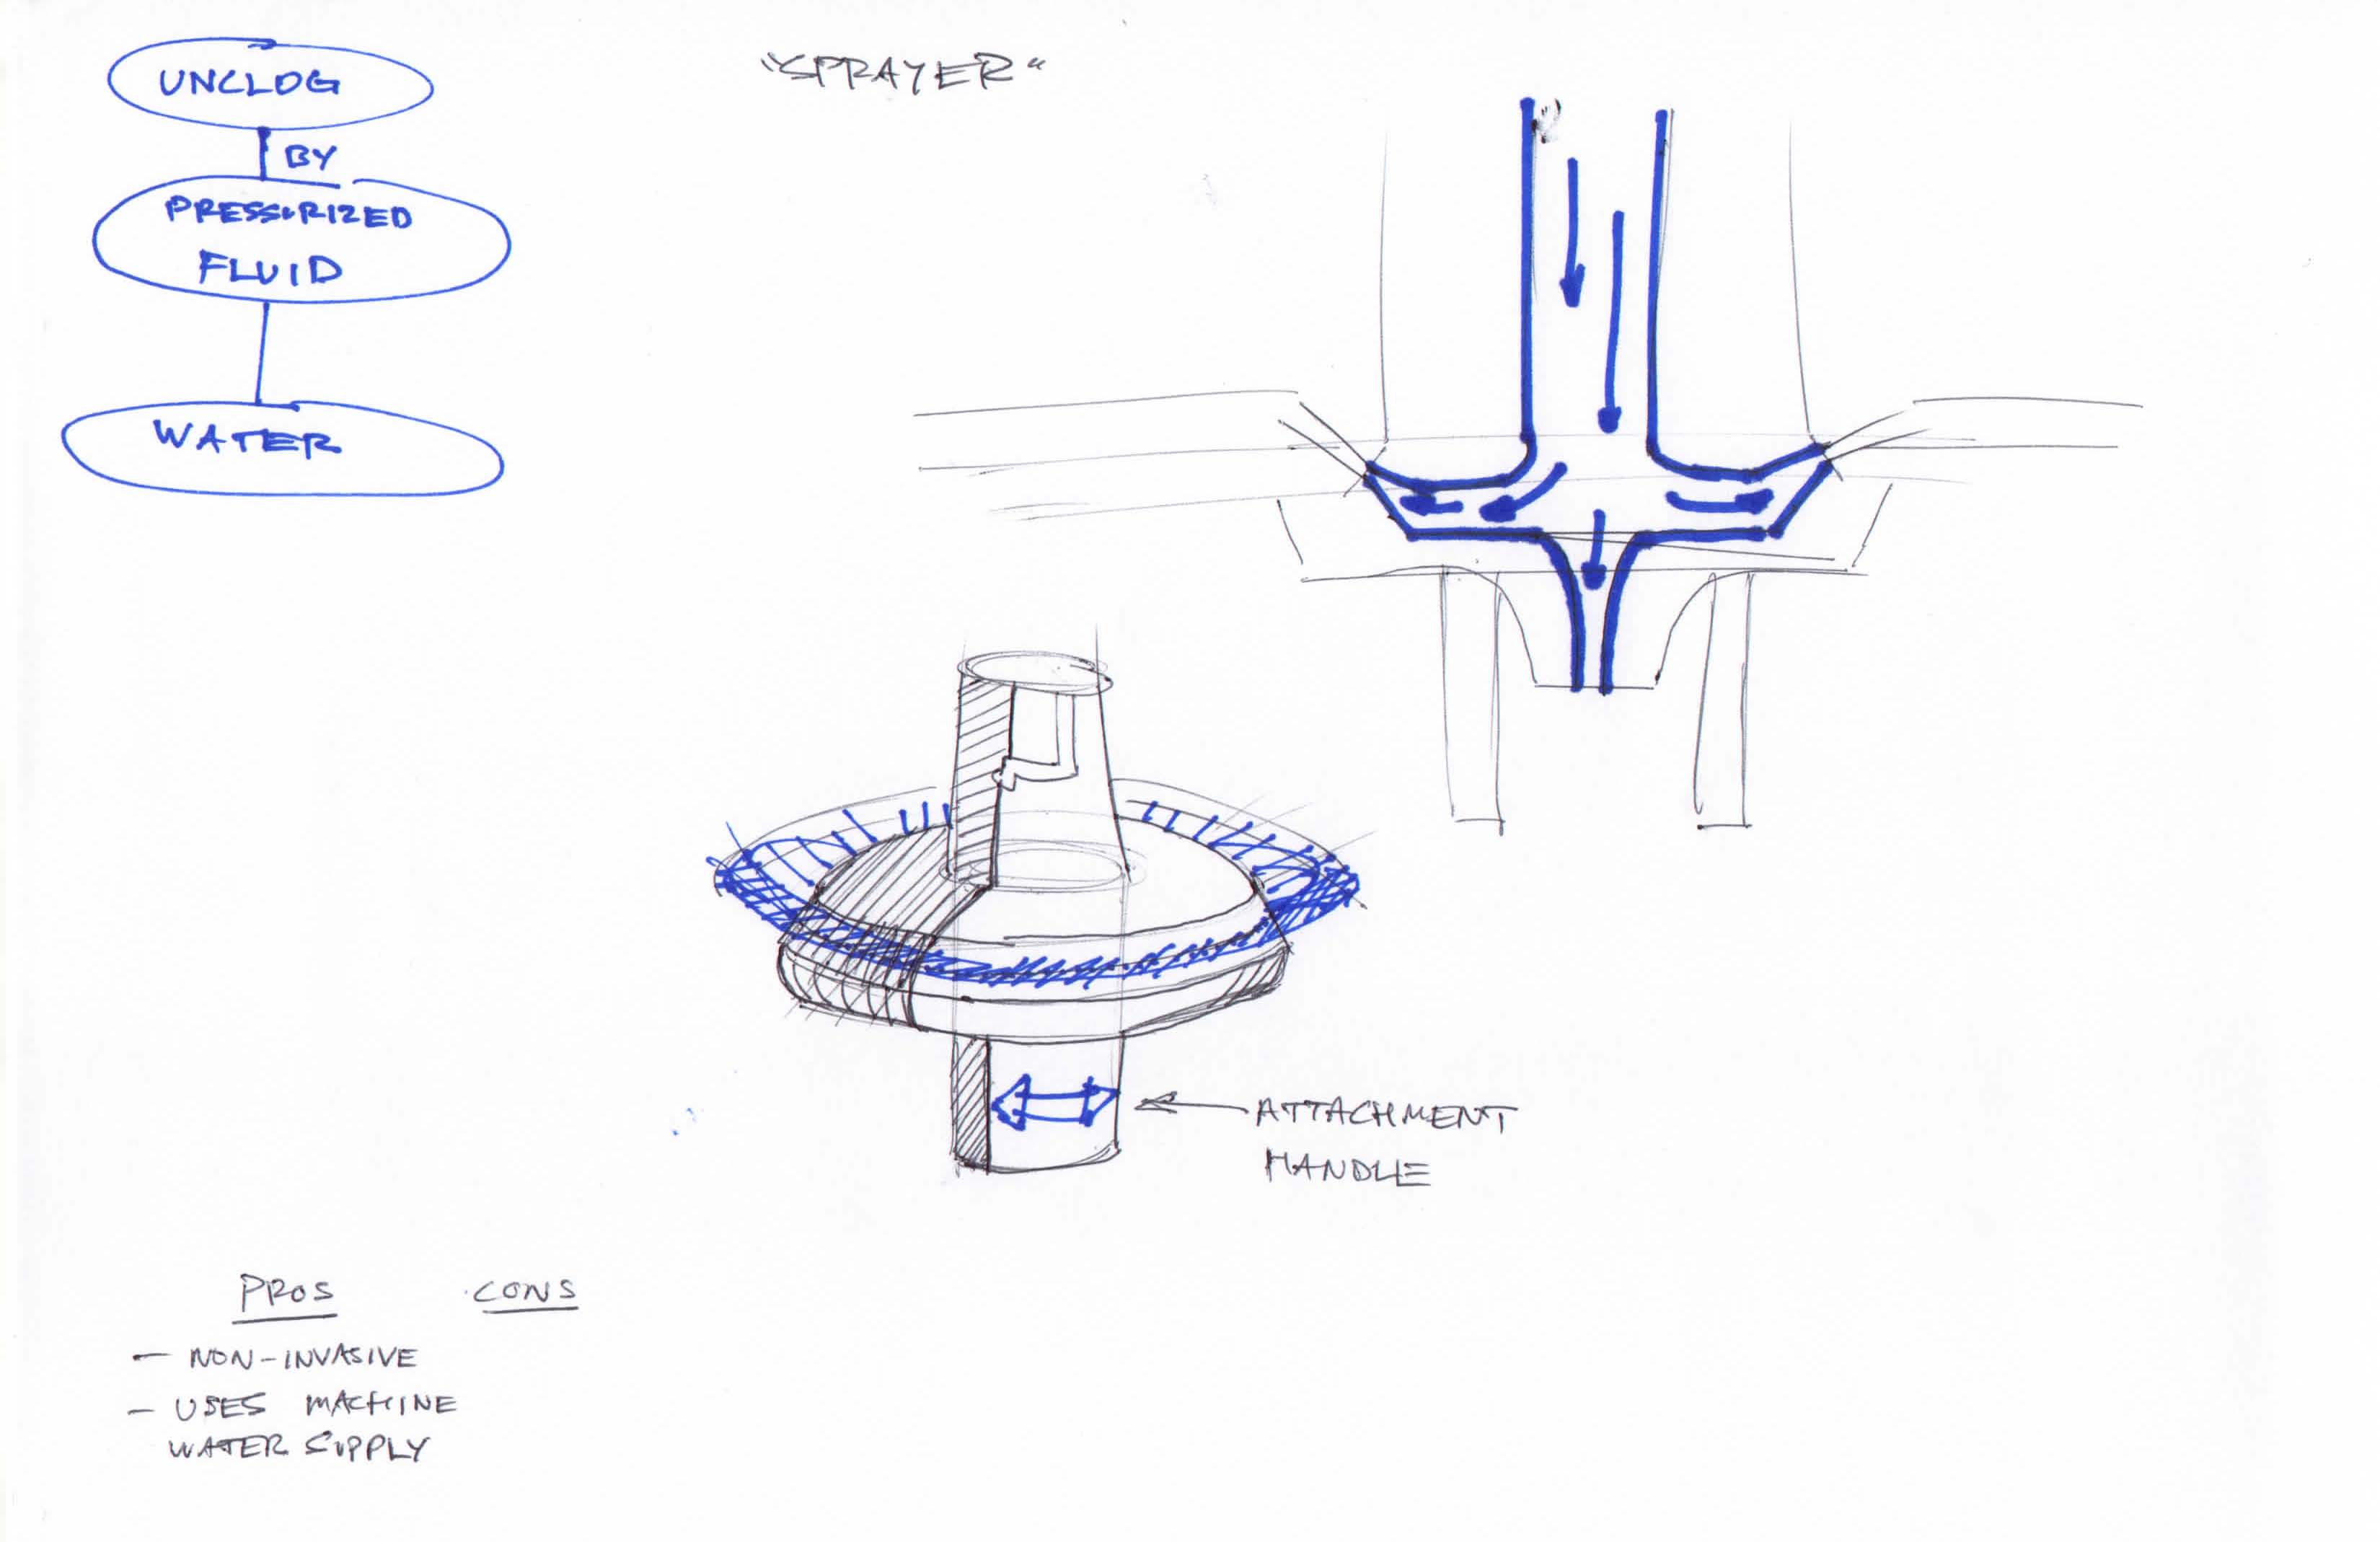 UNCLOG
BY
PRESSURIZED
FLUID
WATER
"SPRAYER"
ATTACHMENT
HANDLE
PROS
- NON-INVASIVE
- USES MACHINE
WATER SUPPLY
CONS